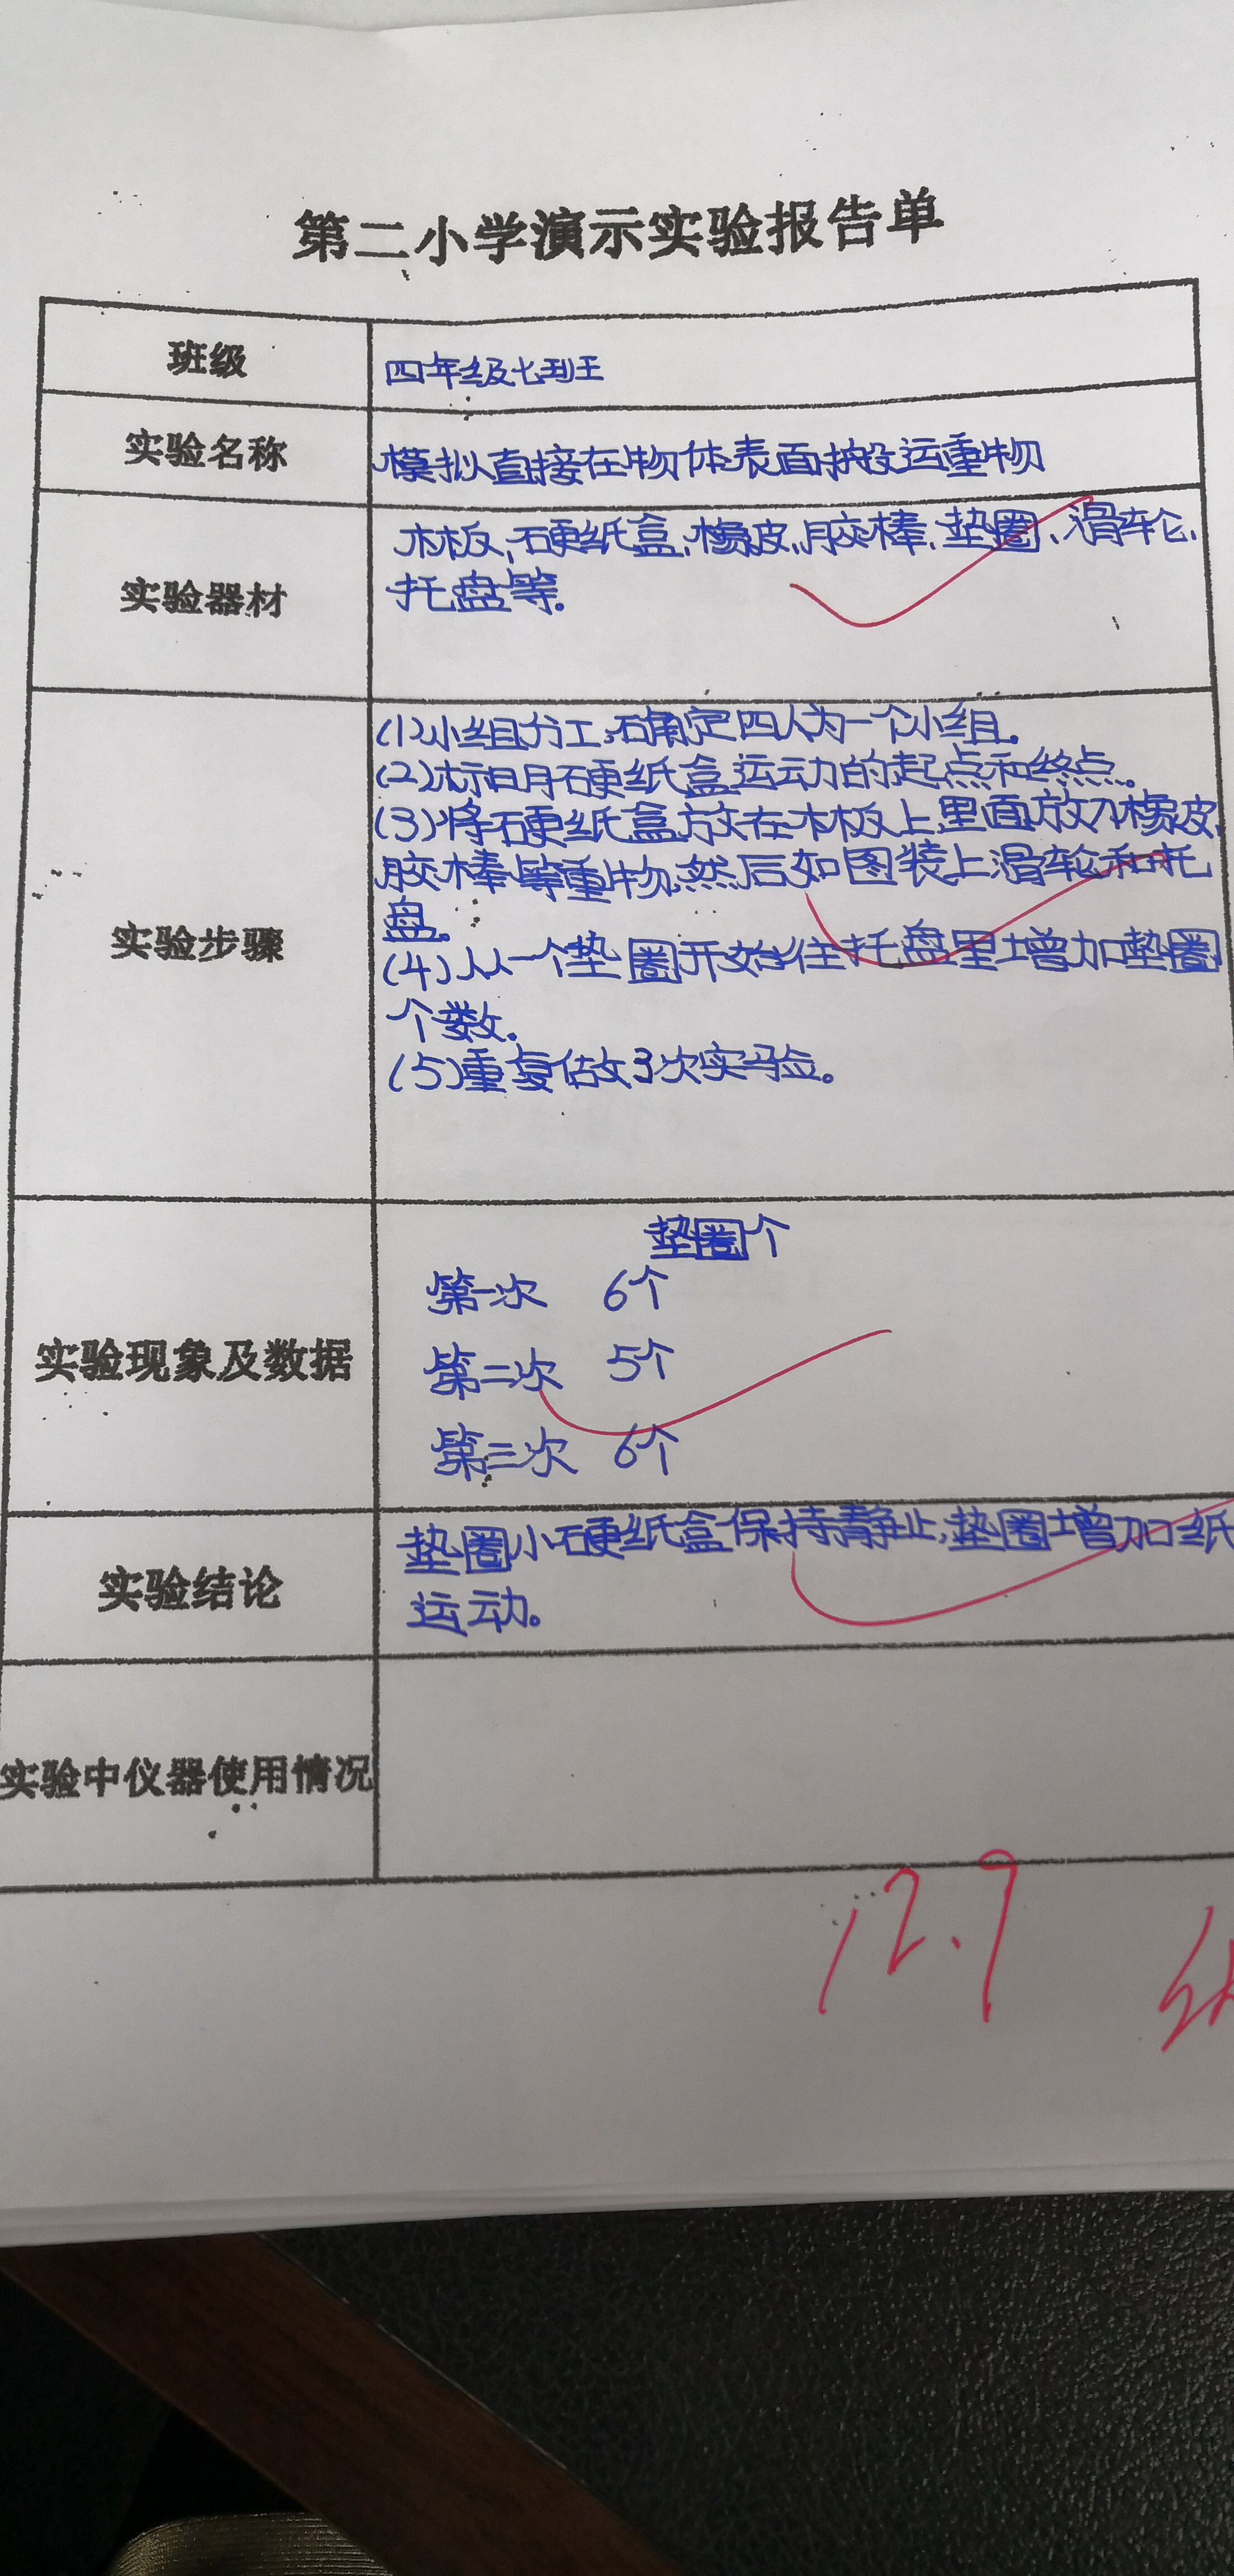 第二小学演示实验报告单
班级
四年级七班
实验名称
模拟直接在物体表面搬运重物
实验器材
木板、硬纸盒、橡皮、胶棒、垫圈、滑轮、
托盘等。
实验步骤
(1)小组分工,确定四人为一个小组。
(2)标明硬纸盒运动的起点和终点。
(3)将硬纸盒放在木板上,里面放入橡皮、
胶棒等重物,然后如图装上滑轮和托
盘。
(4)从一个垫圈开始往托盘里增加垫圈
个数。
(5)重复做3次实验。
实验现象及数据
垫圈个
第一次 6个
第二次 5个
第三次 6个
实验结论
垫圈小硬纸盒保持静止,垫圈增加纸
运动。
实验中仪器使用情况
12.7